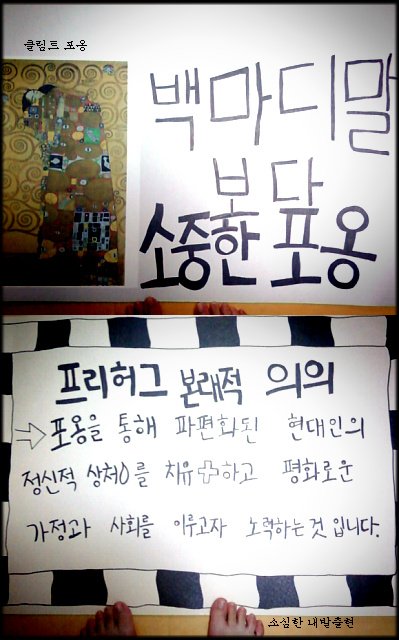 클림트 포옹
백마디말
보다
소중한 포옹
프리허그 본래적 의의
포옹을 통해 파편화된 현대인의
정신적 상처를 치유하고 평화로운
가정과 사회를 이루고자 노력하는 것 입니다.
소심한 내발출현